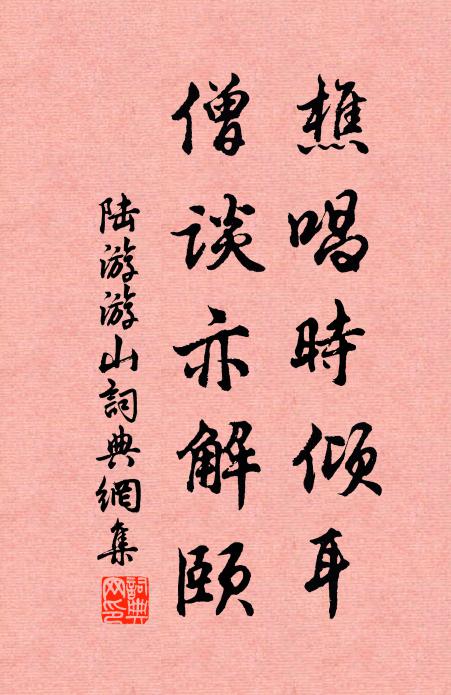 樵唱時傾耳
僧談亦解頤
陆游游山詞典網集
詞典网印